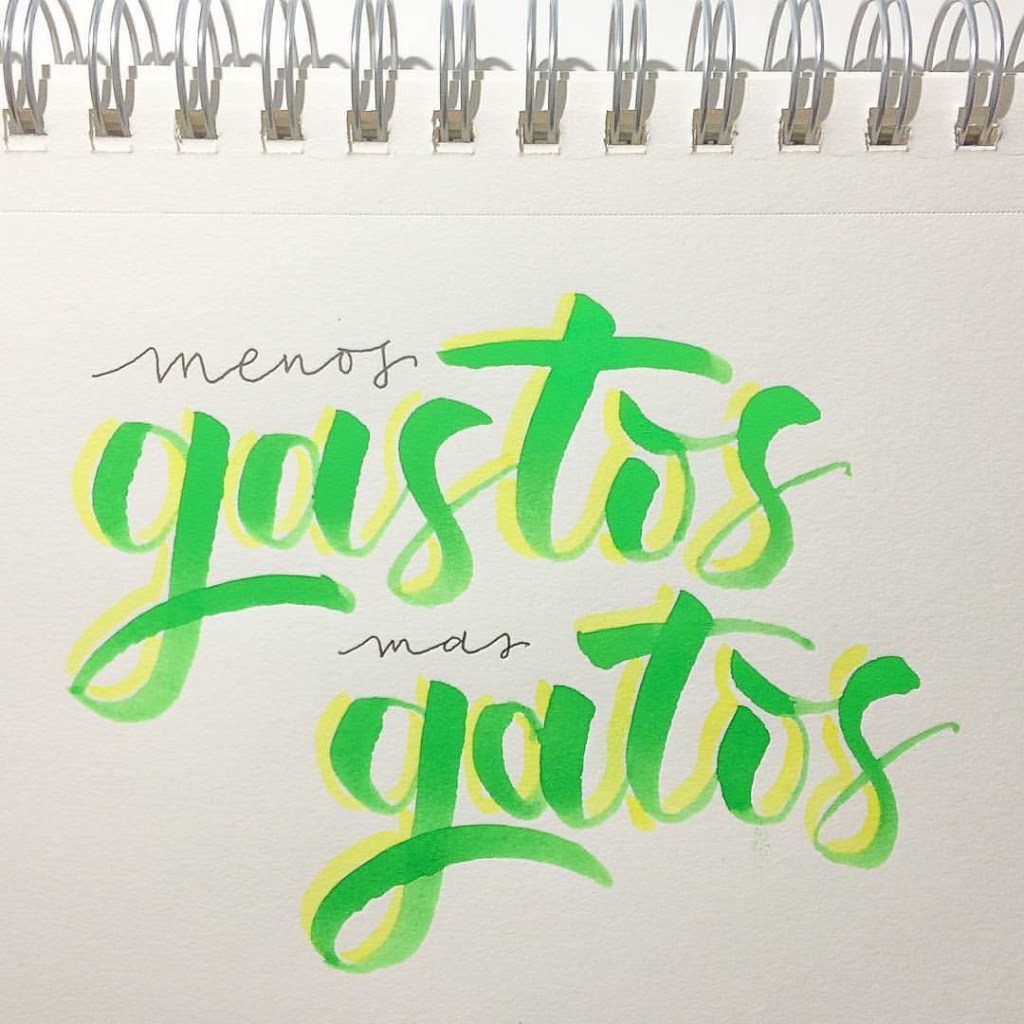 menos
gastos
mas
gatos